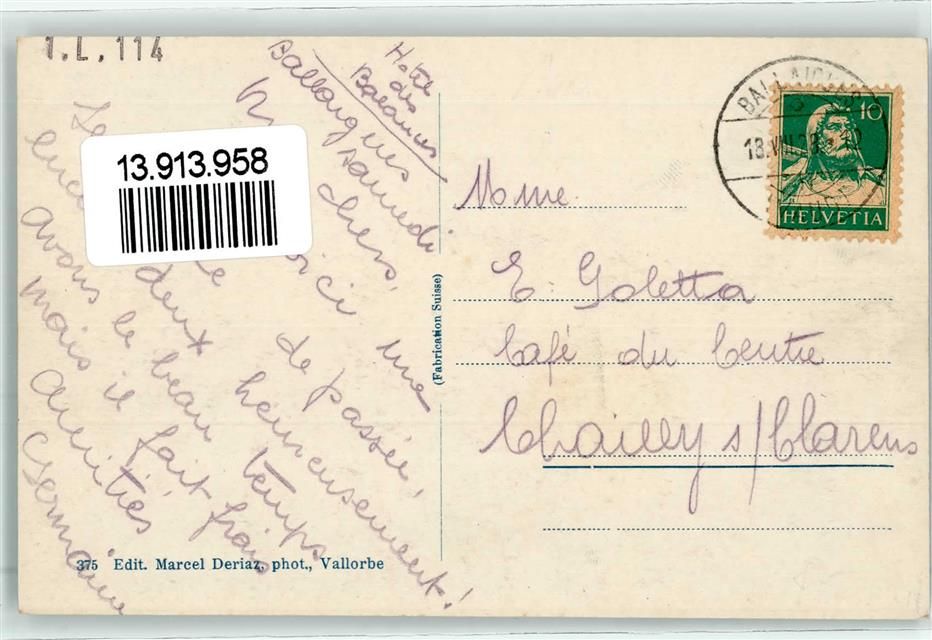 1.L.114
13.913.958
Hotel
des
Ballaigues samedi
chers,
ici une
de passée,
deux heureusement!
avons le beau temps
mais il fait frais
amitiés
Germaine
BALLAIGUES
10
HELVETIA
Mme.
E. Goletta
Café du Centre
Chailly s/Clarens
(Fabrication Suisse)
375 Edit. Marcel Deriaz, phot., Vallorbe